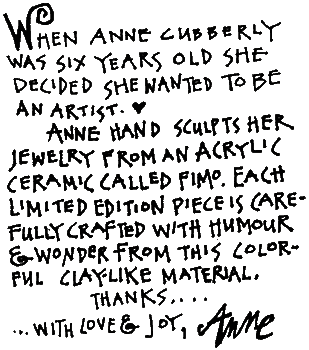 WHEN ANNE CUBBERLY
WAS SIX YEARS OLD SHE
DECIDED SHE WANTED TO BE
AN ARTIST. ♥
ANNE HAND SCULPTS HER
JEWELRY FROM AN ACRYLIC
CERAMIC CALLED FIMO. EACH
LIMITED EDITION PIECE IS CARE-
FULLY CRAFTED WITH HUMOUR
& WONDER FROM THIS COLOR-
FUL CLAY-LIKE MATERIAL.
THANKS....
...WITH LOVE & JOY, Anne